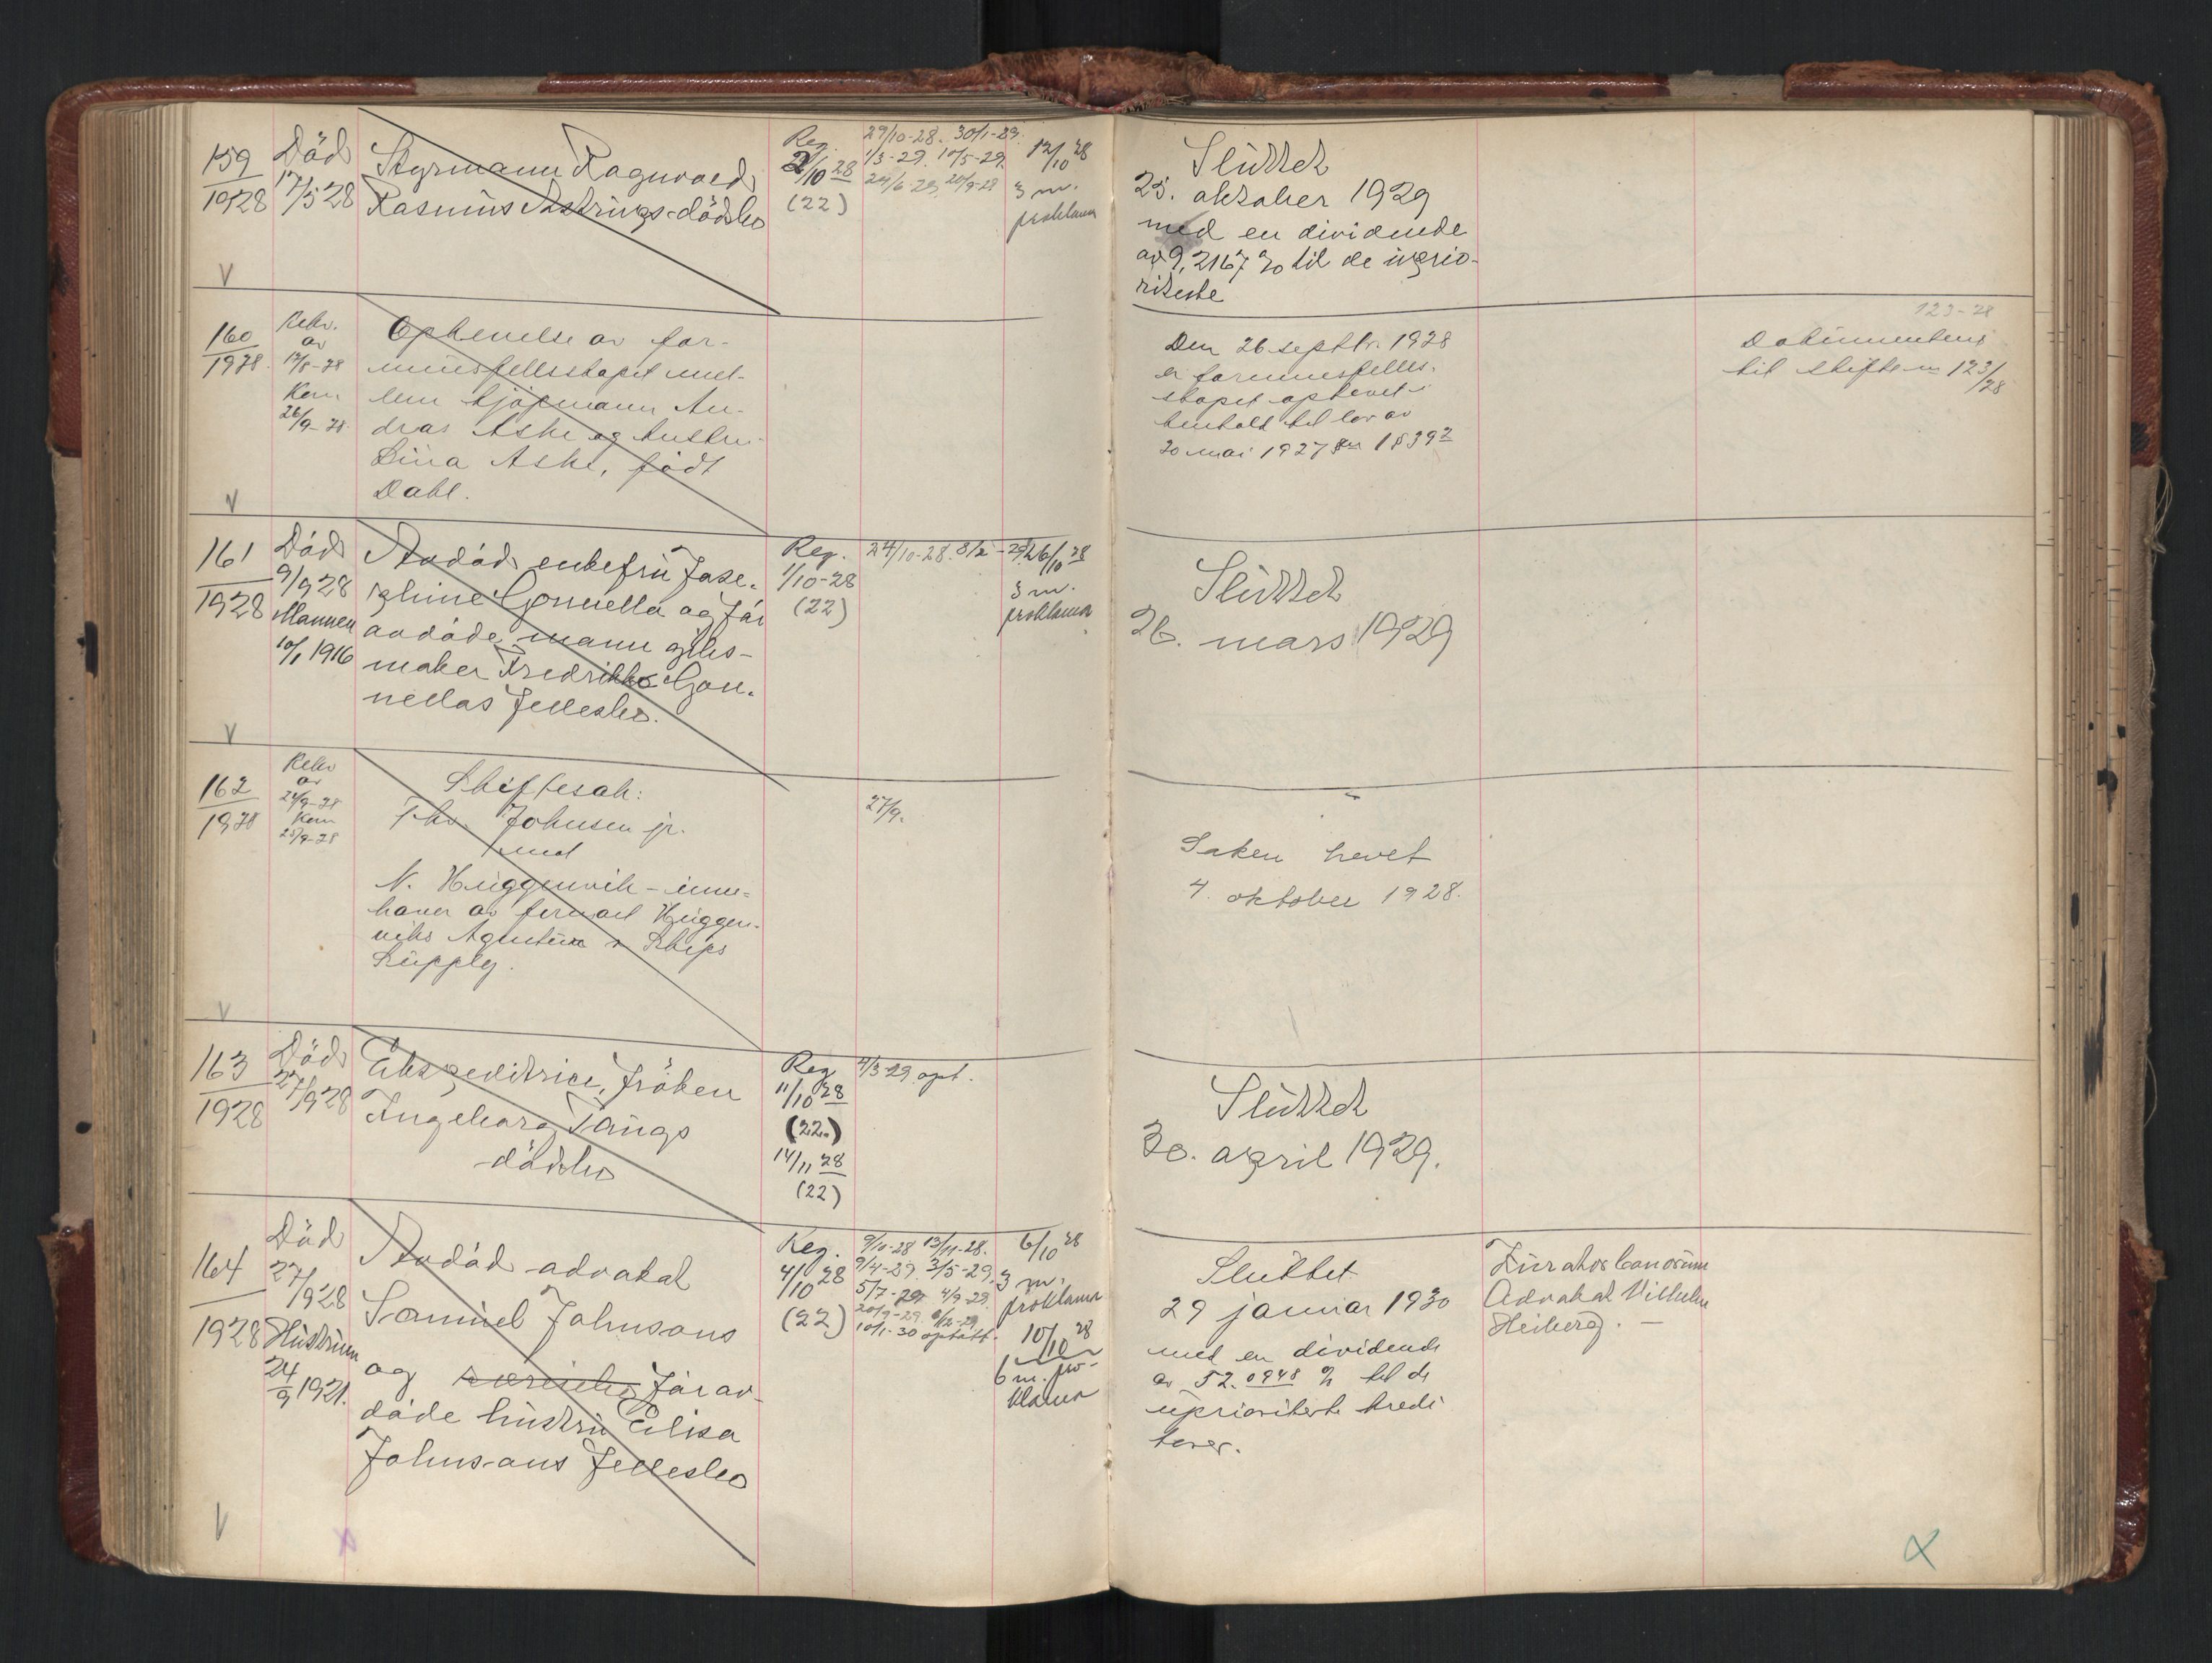 159
1928
Död
17/5 28
Styrmann Ragnvald
Rasmus Askrings dödsbo
Reg.
2/10 28
(22)
29/10-28. 30/1-29.
1/3-29. 10/5-29.
24/6-29. 20/9-29
12/10 28
3 m.
proklama
Sluttet
25. oktober 1929
med en dividende
av 9,2167 % til de uprio-
riterte
V
160
1928.
Rekv.
av
17/8-28
Kom
26/9-28
Ophevelse av for-
muesfellesskapet mel-
lem kjøpmann An-
dras Aske og hustru
Dina Aske, født
Dahl.
Den 26 septbr. 1928
er formuesfelles-
skapet ophevet i
henhold til lov av
20 mai 1927 § 39 2
123-28
Dokumentene
til skifte nr 123/28
V
161
1928
Död
9/9 28
Mannen
10/1 1916
Avdöd enkefru Jose-
phine Gonnella og för
avdöde mann gibs-
maker Fredrikko Gon-
nellas fellesbo.
Reg.
1/10-28
(22)
24/10-28. 8/2-29.
26/10 28
3 m.
proklama
Sluttet
26. mars 1929
V
162
1928
Rekv
av
24/9-28
Kom
25/9-28
Skiftesak:
Johnsen jr.
mot
N. Huggenvik - inne-
haver av firmaet Huggen-
viks Agentur & Skips
Supply.
27/9.
Saken hevet
4. oktober 1928.
V
163
1928
Död
27/9 28
Ekspeditrice, fröken
Ingeborg Tangs
dödsbo
Reg
11/10 28
(22)
14/11 28
(22)
4/3-29 opt.
Sluttet
30. april 1929.
164
1928
Död
27/9 28
Hustruen
24/9 1921.
Avdöd advokat
Samuel Johnsons
og för av-
döde hustru Elisa
Johnsons fellesbo
Reg.
4/10 28
(22)
9/10-28 13/11-28.
9/4-29. 3/5-29.
5/7-29 4/9-29.
20/9-29. 6/12-29
10/1-30 optatt.
6/10 28
3 m.
proklama
10/10 28
6 m. pro-
klama
Sluttet
29 januar 1930
med en dividende
av 52.0948 % til de
uprioriterte kredi
torer.
Kurator bonorum
Advokat Vilhelm
Heiberg. -
V